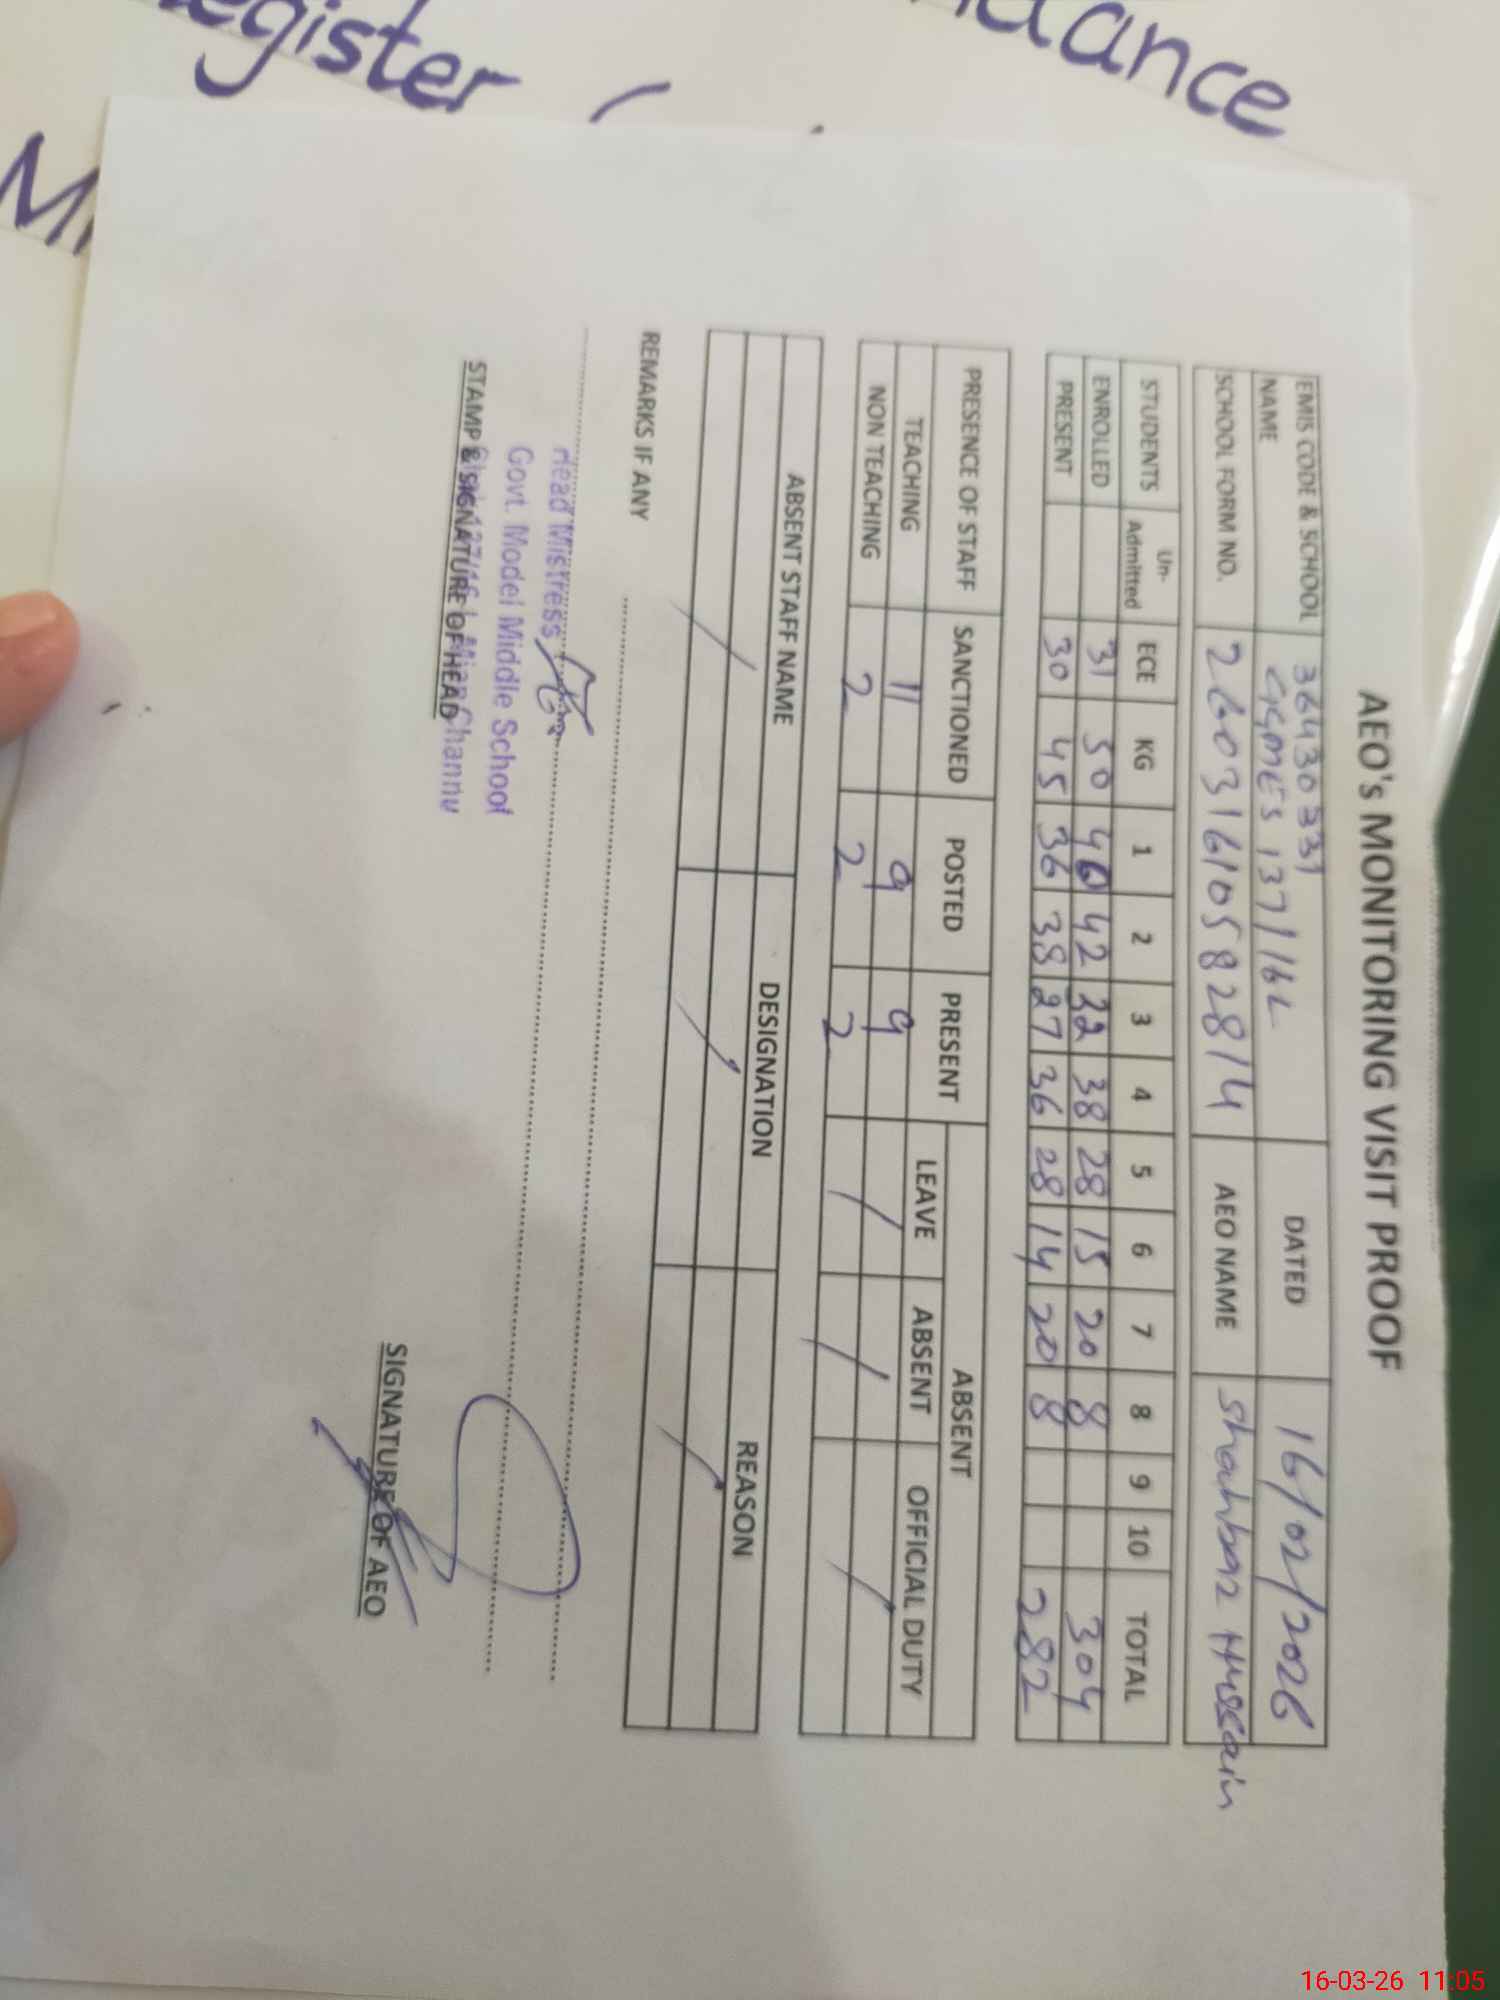 egister (
ndance
M
AEO's MONITORING VISIT PROOF
EMIS CODE & SCHOOL NAME 36430331 GGMES 137/16L DATED 16/02/2026
SCHOOL FORM NO. 26031610582814 AEO NAME Shahbaz Hussain
STUDENTS Un-Admitted ECE KG 1 2 3 4 5 6 7 8 9 10 TOTAL
ENROLLED 31 50 40 42 32 38 28 15 20 8 304
PRESENT 30 45 36 38 27 36 28 14 20 8 282
PRESENCE OF STAFF SANCTIONED POSTED PRESENT ABSENT
LEAVE ABSENT OFFICIAL DUTY
TEACHING 11 9 9 /
NON TEACHING 2 2 2 / /
ABSENT STAFF NAME DESIGNATION REASON
/ / /
REMARKS IF ANY
Head Mistress
Govt. Model Middle School
Mian Channu
STAMP & SIGNATURE OF HEAD
SIGNATURE OF AEO
16-03-26 11:05